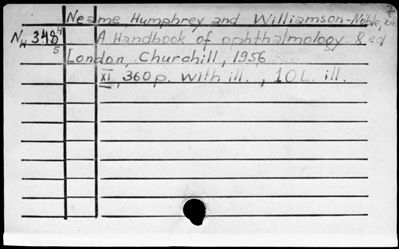 Neame Humphrey and Williamson-Noble,
A Handbook of ophthalmology 8 ed
London, Churchill, 1956
XI, 360 p. With ill., 10 L. ill.